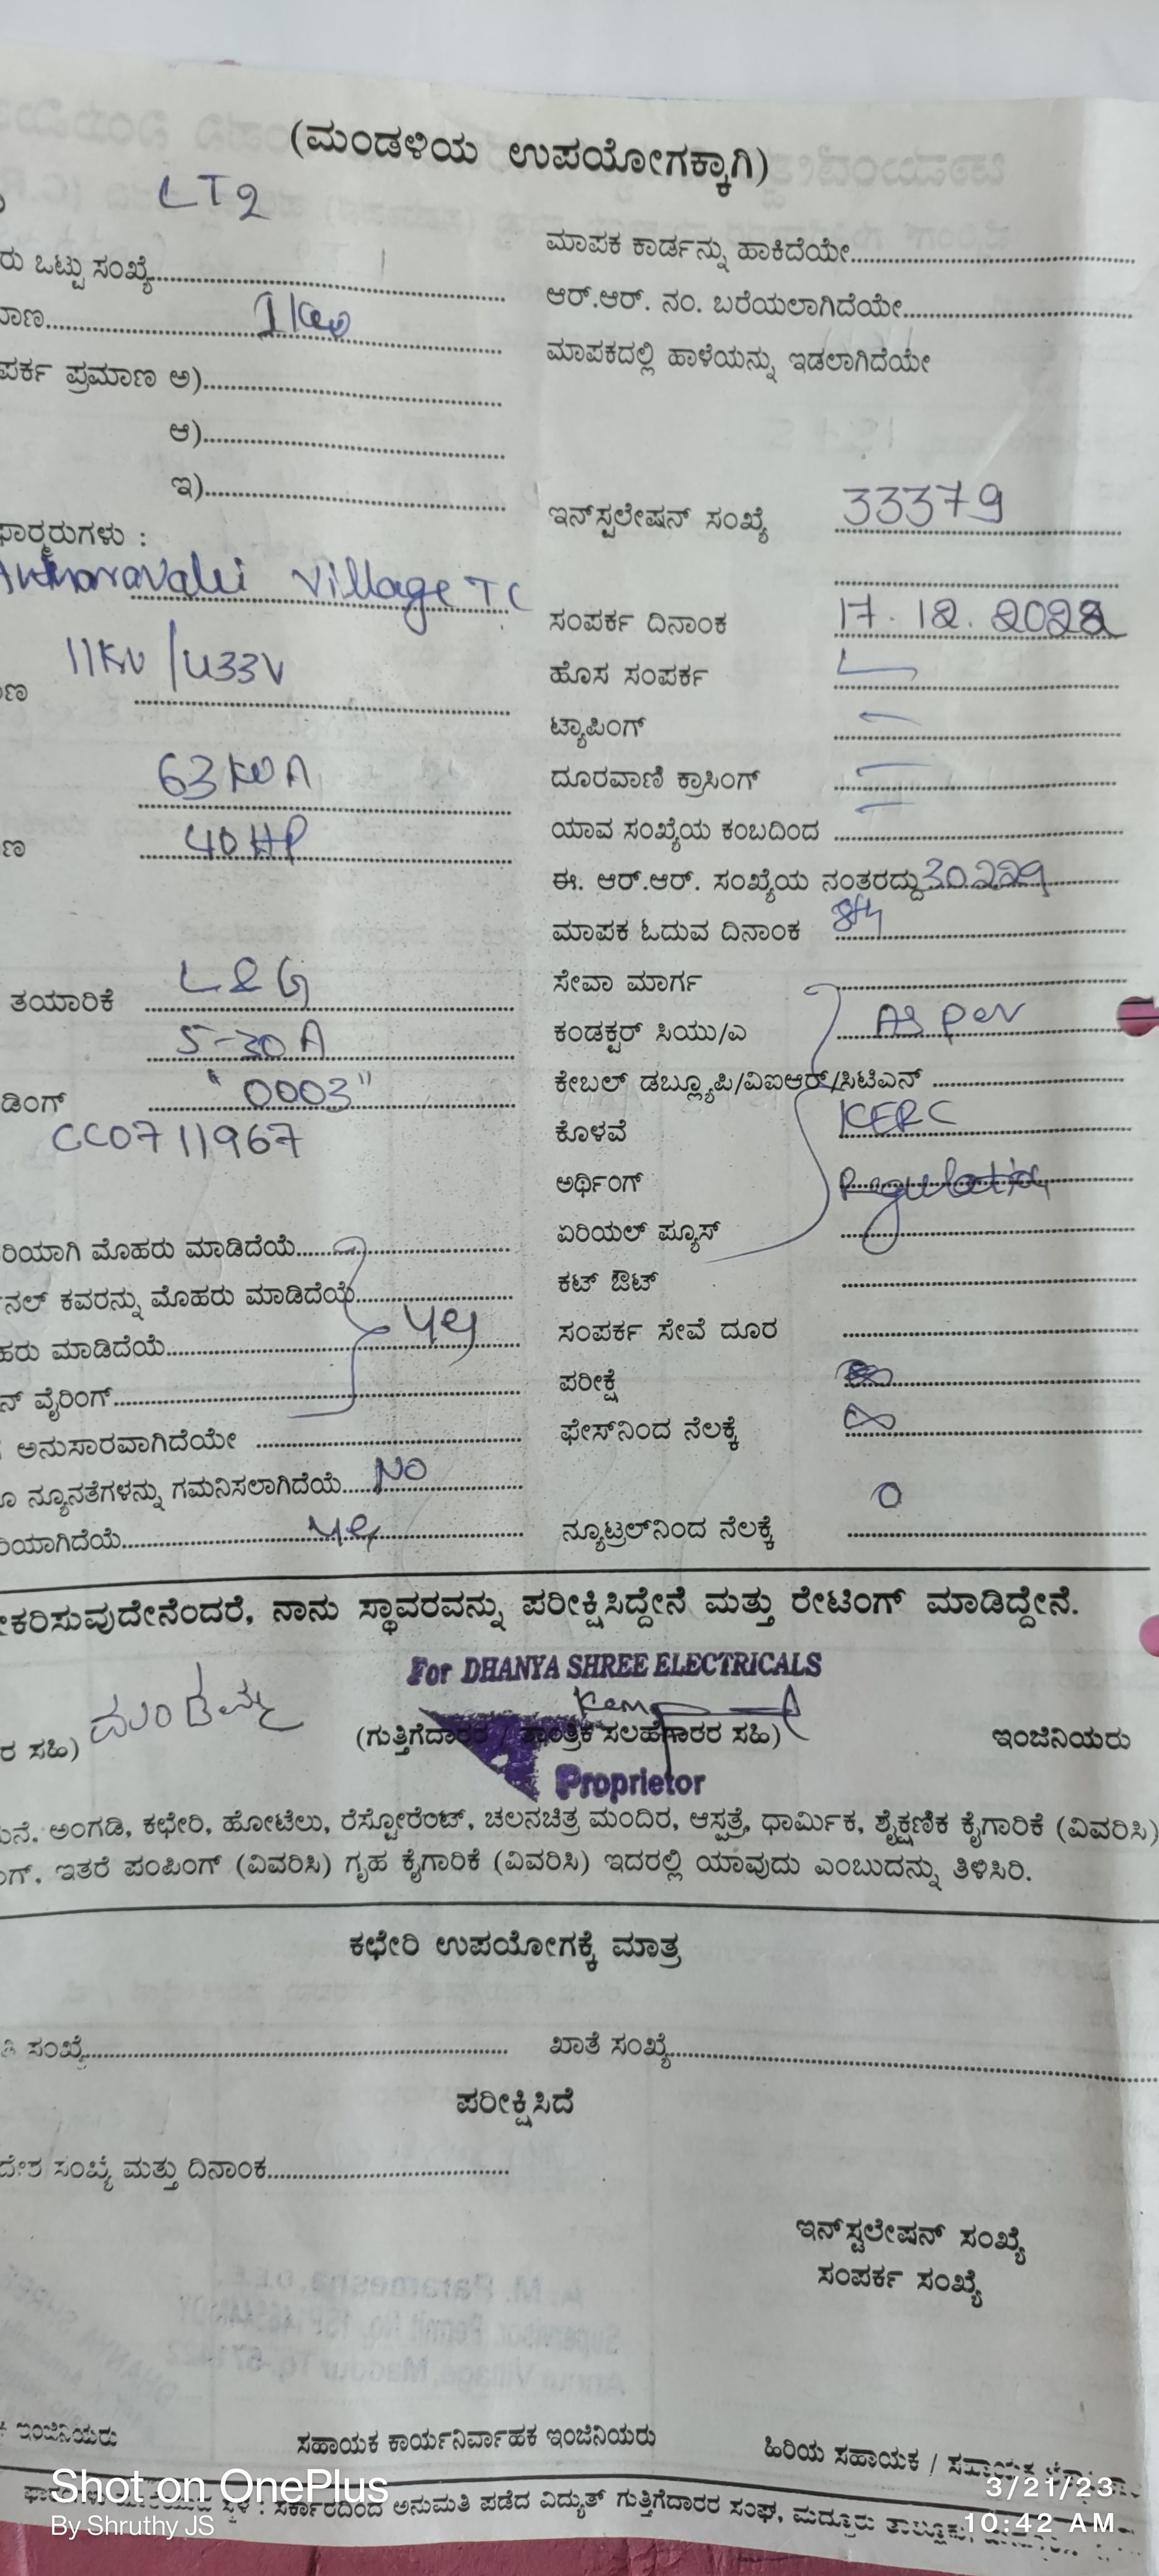 (ಮಂಡಳಿಯ ಉಪಯೋಗಕ್ಕಾಗಿ)
LT2
ರು ಒಟ್ಟು ಸಂಖ್ಯೆ
ಮಾಪಕ ಕಾರ್ಡನ್ನು ಹಾಕಿದೆಯೇ
ಆರ್.ಆರ್. ನಂ. ಬರೆಯಲಾಗಿದೆಯೇ
ಪರ್ಕ ಪ್ರಮಾಣ ಅ)
ಮಾಪಕದಲ್ಲಿ ಹಾಳೆಯನ್ನು ಇಡಲಾಗಿದೆಯೇ
ಆ)
ಇ)
ಇನ್‌ಸ್ಟಲೇಷನ್ ಸಂಖ್ಯೆ 33379
ಫಾರ್ಮರುಗಳು :
Village TC
ಸಂಪರ್ಕ ದಿನಾಂಕ 17.12.2022
11KV/433V
ಹೊಸ ಸಂಪರ್ಕ
ಟ್ಯಾಪಿಂಗ್
63KVA
ದೂರವಾಣಿ ಕ್ರಾಸಿಂಗ್
40HP
ಯಾವ ಸಂಖ್ಯೆಯ ಕಂಬದಿಂದ
ಈ. ಆರ್.ಆರ್. ಸಂಖ್ಯೆಯ ನಂತರದ್ದು 30229
ಮಾಪಕ ಓದುವ ದಿನಾಂಕ 8th
ತಯಾರಿಕೆ L&G
ಸೇವಾ ಮಾರ್ಗ
5-30A
ಕಂಡಕ್ಟರ್ ಸಿಯು/ಎ As per
ಡಿಂಗ್ "0003"
ಕೇಬಲ್ ಡಬ್ಲ್ಯೂಪಿ/ವಿಐಆರ್/ಸಿಟಿಎನ್
CC0711967
ಕೊಳವೆ KERC
ಅರ್ಥಿಂಗ್ Regulation
ಏರಿಯಲ್ ಪ್ಯೂಸ್
ರಿಯಾಗಿ ಮೊಹರು ಮಾಡಿದೆಯೆ
ಕಟ್ ಔಟ್
ನಲ್ ಕವರನ್ನು ಮೊಹರು ಮಾಡಿದೆಯೆ
ಹರು ಮಾಡಿದೆಯೆ yes
ಸಂಪರ್ಕ ಸೇವೆ ದೂರ
ನ್ ವೈರಿಂಗ್
ಪರೀಕ್ಷೆ
ಅನುಸಾರವಾಗಿದೆಯೇ
ಫೇಸ್‌ನಿಂದ ನೆಲಕ್ಕೆ ∞
ನ್ಯೂನತೆಗಳನ್ನು ಗಮನಿಸಲಾಗಿದೆಯೆ NO
ರಿಯಾಗಿದೆಯೆ yes
ನ್ಯೂಟ್ರಲ್‌ನಿಂದ ನೆಲಕ್ಕೆ 0
ೀಕರಿಸುವುದೇನೆಂದರೆ, ನಾನು ಸ್ಥಾವರವನ್ನು ಪರೀಕ್ಷಿಸಿದ್ದೇನೆ ಮತ್ತು ರೇಟಿಂಗ್ ಮಾಡಿದ್ದೇನೆ.
For DHANYA SHREE ELECTRICALS
ರ ಸಹಿ) (ಗುತ್ತಿಗೆದಾರರ / ತಾಂತ್ರಿಕ ಸಲಹೆಗಾರರ ಸಹಿ) ಇಂಜಿನಿಯರು
Proprietor
ಮನೆ. ಅಂಗಡಿ, ಕಛೇರಿ, ಹೋಟೆಲು, ರೆಸ್ಟೋರೆಂಟ್, ಚಲನಚಿತ್ರ ಮಂದಿರ, ಆಸ್ಪತ್ರೆ, ಧಾರ್ಮಿಕ, ಶೈಕ್ಷಣಿಕ ಕೈಗಾರಿಕೆ (ವಿವರಿಸಿ)
ಂಗ್, ಇತರೆ ಪಂಪಿಂಗ್ (ವಿವರಿಸಿ) ಗೃಹ ಕೈಗಾರಿಕೆ (ವಿವರಿಸಿ) ಇದರಲ್ಲಿ ಯಾವುದು ಎಂಬುದನ್ನು ತಿಳಿಸಿರಿ.
ಕಛೇರಿ ಉಪಯೋಗಕ್ಕೆ ಮಾತ್ರ
ಸಂಖ್ಯೆ ಖಾತೆ ಸಂಖ್ಯೆ
ಪರೀಕ್ಷಿಸಿದೆ
ದೇಶ ಸಂಖ್ಯೆ ಮತ್ತು ದಿನಾಂಕ
ಇನ್‌ಸ್ಟಲೇಷನ್ ಸಂಖ್ಯೆ
ಸಂಪರ್ಕ ಸಂಖ್ಯೆ
ಇಂಜಿನಿಯರು ಸಹಾಯಕ ಕಾರ್ಯನಿರ್ವಾಹಕ ಇಂಜಿನಿಯರು ಹಿರಿಯ ಸಹಾಯಕ /
ಸ್ಥಳ : ಸರ್ಕಾರದಿಂದ ಅನುಮತಿ ಪಡೆದ ವಿದ್ಯುತ್ ಗುತ್ತಿಗೆದಾರರ ಸಂಘ, ಮದ್ದೂರು ತಾಲ್ಲೂಕು,
Shot on OnePlus
By Shruthy JS
3/21/23
10:42 AM